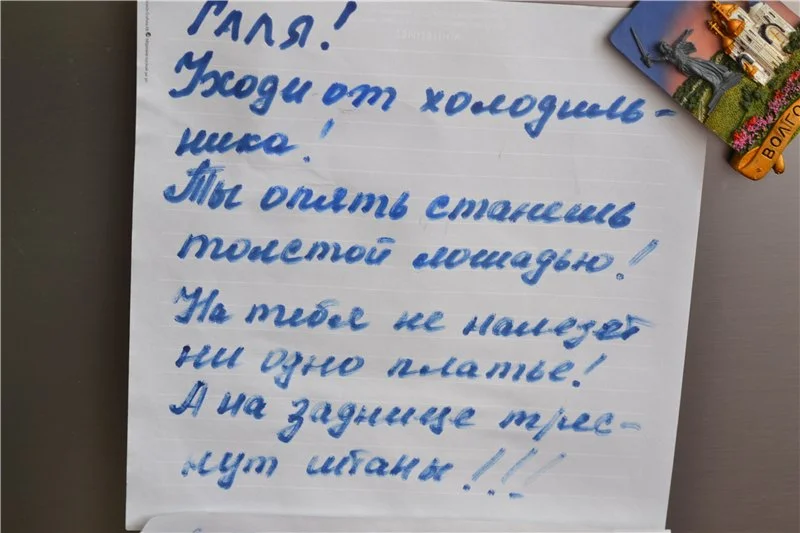 ГАЛЯ!
Уходи от холодиль-
ника!
Ты опять станешь
толстой лошадью!
На тебя не налезет
ни одно платье!
А на заднице трес-
нут штаны!!!
ВОЛГО